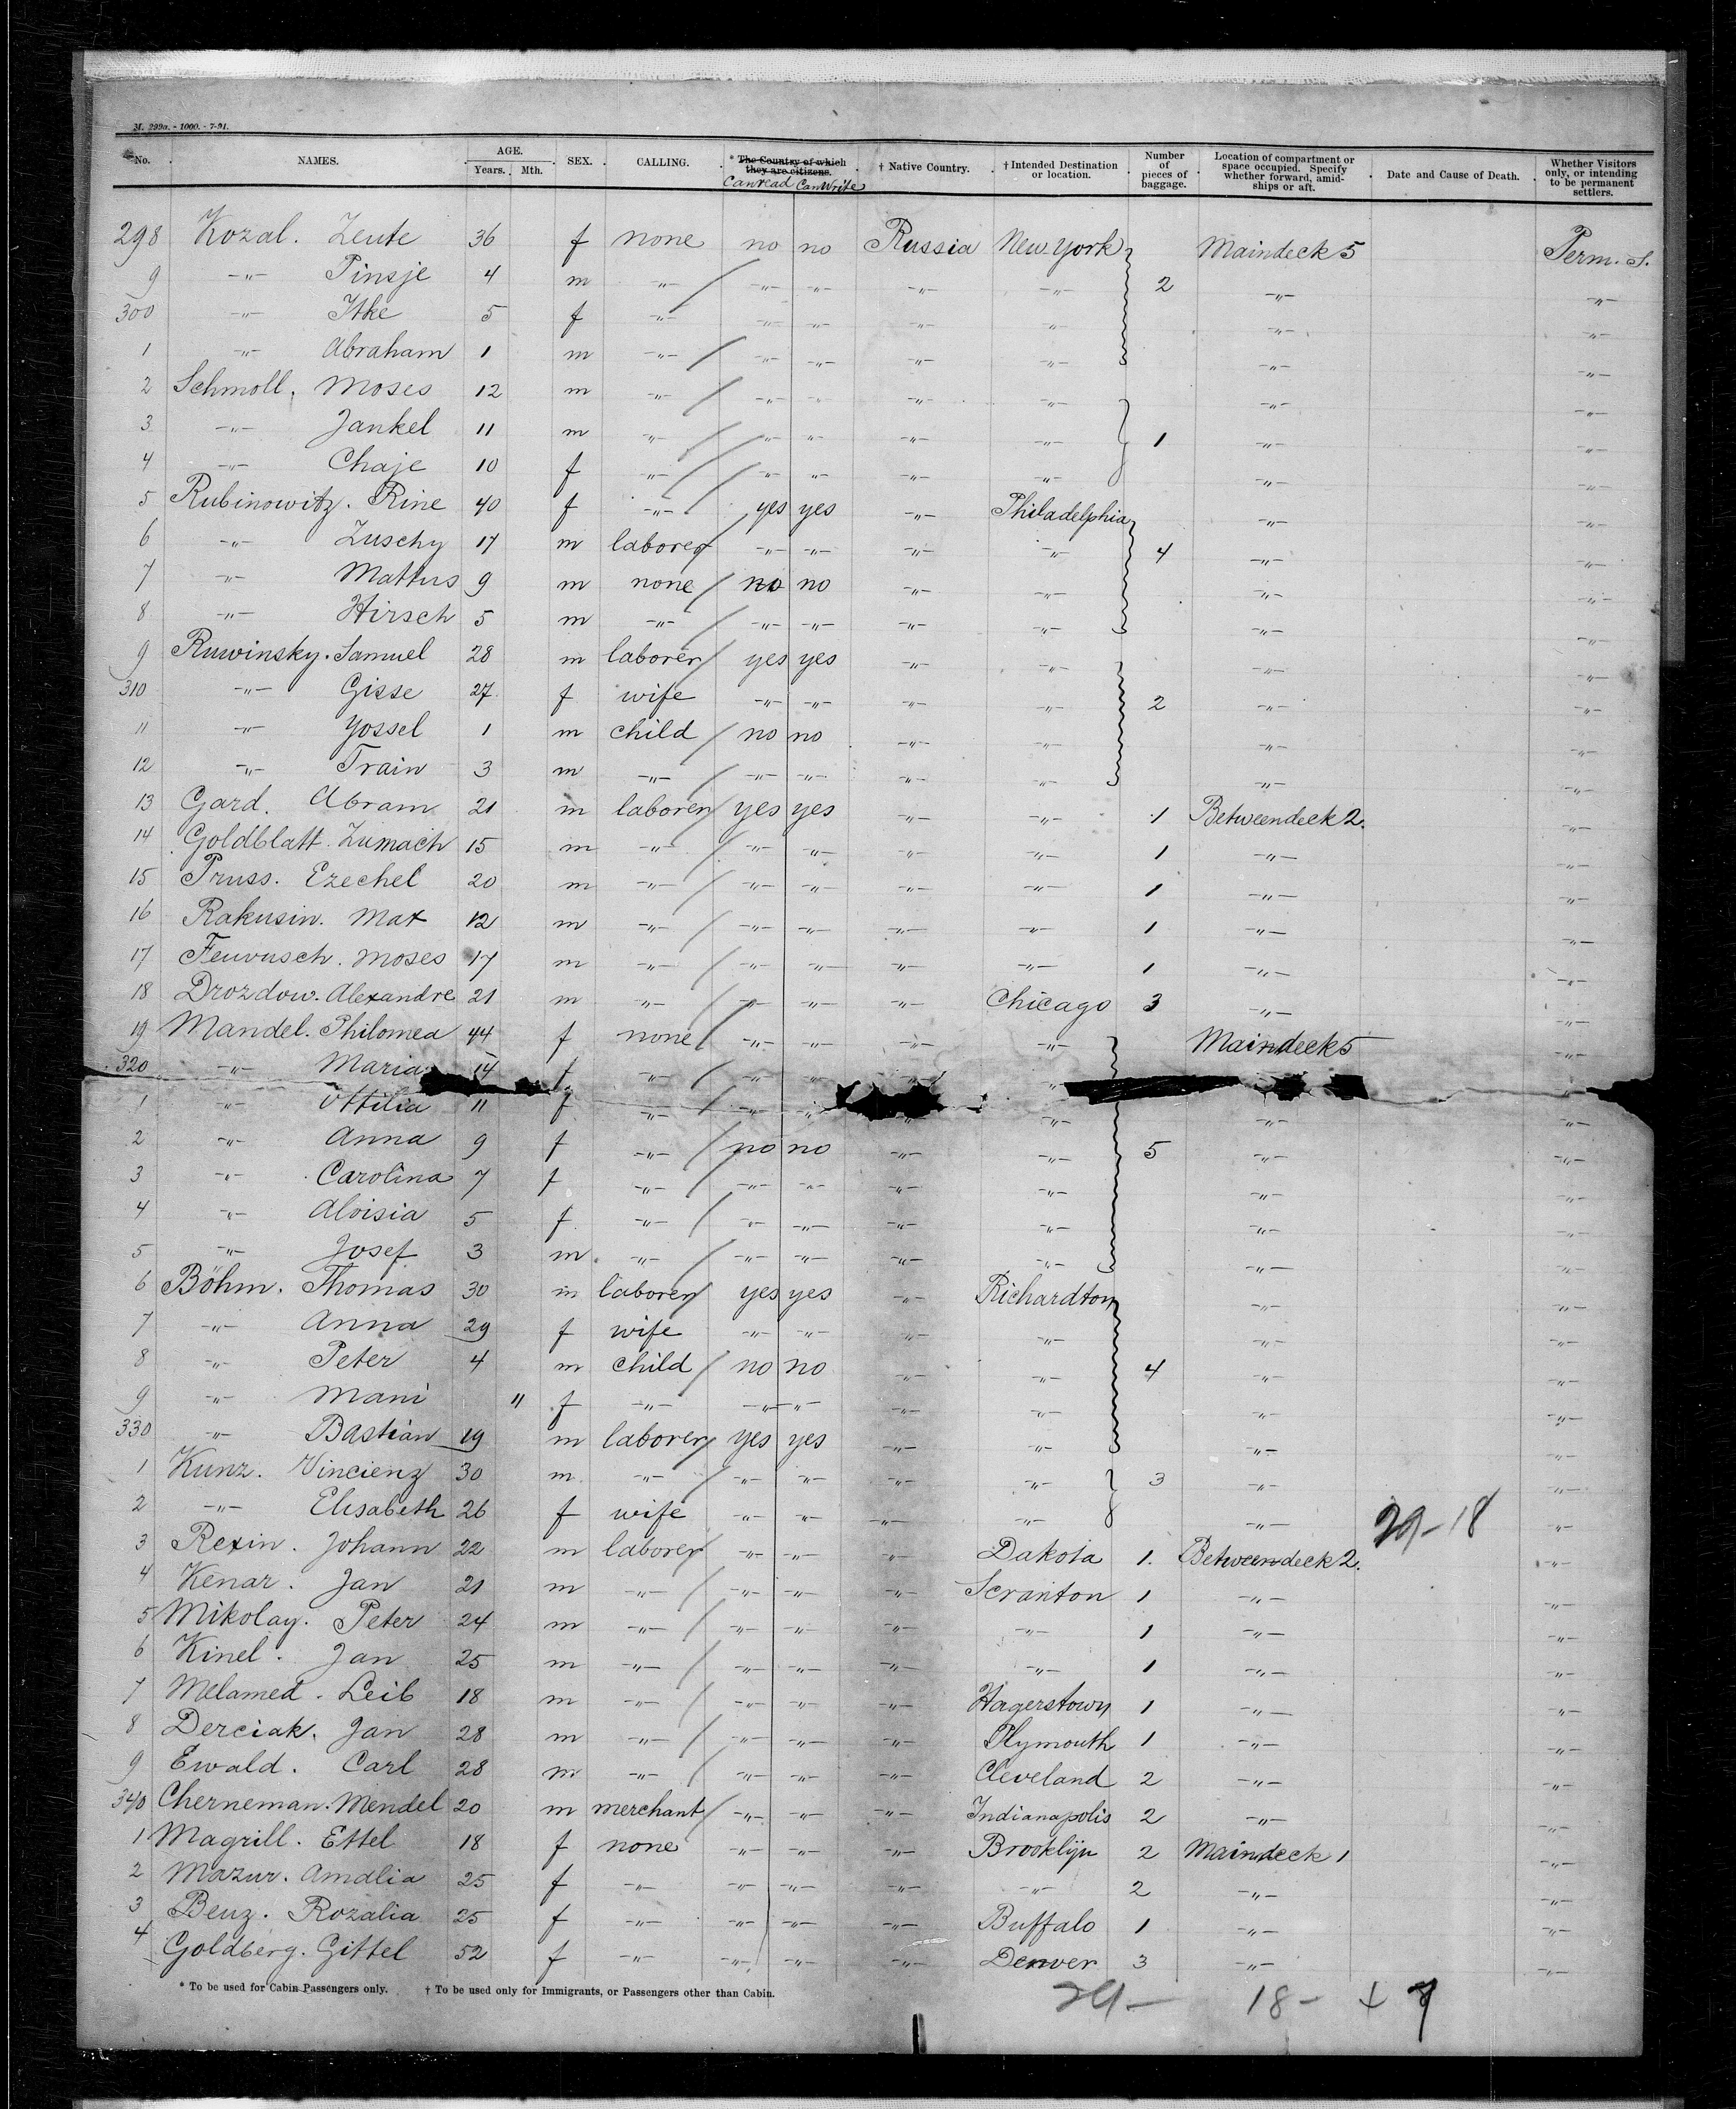 M. 299a. - 1000. - 7-91.
No. NAMES. AGE. Years. Mth. SEX. CALLING. * The Country of which they are citizens. Can read Can Write † Native Country. † Intended Destination or location. Number of pieces of baggage. Location of compartment or space occupied. Specify whether forward, amidships or aft. Date and Cause of Death. Whether Visitors only, or intending to be permanent settlers.
298 Kozal. Zeute 36 f none no no Russia New York Maindeck 5 Perm. S.
9 -"- Pinsje 4 m -"- / -"- -"- -"- -"- 2 -"- -"-
300 -"- Itke 5 f -"- -"- -"- -"- -"- -"- -"-
1 -"- Abraham 1 m -"- / -"- -"- -"- -"- -"- -"-
2 Schmoll. Moses 12 m -"- / -"- -"- -"- -"- -"- -"-
3 -"- Jankel 11 m -"- / -"- -"- -"- -"- 1 -"- -"-
4 -"- Chaje 10 f -"- / -"- -"- -"- -"- -"- -"-
5 Rubinowitz. Rine 40 f -"- / yes yes -"- Philadelphia -"- -"-
6 -"- Zuschy 17 m laborer -"- -"- -"- -"- 4 -"- -"-
7 -"- Mattus 9 m none / no no -"- -"- -"- -"-
8 -"- Hirsch 5 m -"- / -"- -"- -"- -"- -"- -"-
9 Ruwinsky. Samuel 28 m laborer / yes yes -"- -"- -"- -"-
310 -"- Gisse 27 f wife -"- -"- -"- -"- 2 -"- -"-
11 -"- Yossel 1 m child / no no -"- -"- -"- -"-
12 -"- Train 3 m -"- / -"- -"- -"- -"- -"- -"-
13 Gard. Abram 21 m laborer / yes yes -"- -"- 1 Betweendeck 2. -"-
14 Goldblatt. Zumach 15 m -"- / -"- -"- -"- -"- 1 -"- -"-
15 Pruss. Ezechel 20 m -"- / -"- -"- -"- -"- 1 -"- -"-
16 Rakusin. Max 12 m -"- / -"- -"- -"- -"- 1 -"- -"-
17 Feuvusch. Moses 17 m -"- / -"- -"- -"- -"- 1 -"- -"-
18 Drozdow. Alexandre 21 m -"- / -"- -"- -"- Chicago 3 -"- -"-
19 Mandel. Philomea 44 f none / -"- -"- -"- -"- Maindeck 5 -"-
320 -"- Maria 14 f -"- / -"- -"-
1 -"- Ottilia 11 f -"- / -"- -"- -"- -"- -"- -"-
2 -"- Anna 9 f -"- / no no -"- -"- 5 -"- -"-
3 -"- Carolina 7 f -"- / -"- -"- -"- -"- -"- -"-
4 -"- Aloisia 5 f -"- / -"- -"- -"- -"- -"- -"-
5 -"- Josef 3 m -"- / -"- -"- -"- -"- -"- -"-
6 Böhm. Thomas 30 m laborer / yes yes -"- Richardton -"- -"-
7 -"- Anna 29 f wife -"- -"- -"- -"- -"-
8 -"- Peter 4 m child / no no -"- -"- 4 -"- -"-
9 -"- Mani 11 f -"- -"- -"- -"- -"- -"- -"-
330 -"- Bastian 19 m laborer / yes yes -"- -"- -"- -"-
1 Kunz. Vincienz 30 m -"- / -"- -"- -"- -"- 3 -"- -"-
2 -"- Elisabeth 26 f wife -"- -"- -"- -"- -"- 29-18 -"-
3 Rexin. Johann 22 m laborer / -"- -"- -"- Dakota 1. Betweendeck 2. -"-
4 Kenar. Jan 21 m -"- / -"- -"- -"- Scranton 1 -"- -"-
5 Mikolay. Peter 24 m -"- / -"- -"- -"- -"- 1 -"- -"-
6 Kinel. Jan 25 m -"- / -"- -"- -"- -"- 1 -"- -"-
7 Melamed. Leib 18 m -"- / -"- -"- -"- Hagerstown 1 -"- -"-
8 Derciak. Jan 28 m -"- / -"- -"- -"- Plymouth 1 -"- -"-
9 Ewald. Carl 28 m -"- / -"- -"- -"- Cleveland 2 -"- -"-
340 Cherneman. Mendel 20 m merchant / -"- -"- -"- Indianapolis 2 -"- -"-
1 Magrill. Ettel 18 f none -"- -"- -"- Brooklijn 2 Maindeck 1 -"-
2 Mazur. Amalia 25 f -"- -"- -"- -"- -"- 2 -"- -"-
3 Benz. Rozalia 25 f -"- -"- -"- -"- Buffalo 1 -"- -"-
4 Goldberg. Gittel 52 f -"- -"- -"- -"- Denver 3 -"- -"-
* To be used for Cabin Passengers only. † To be used only for Immigrants, or Passengers other than Cabin.
29- 18- + 7